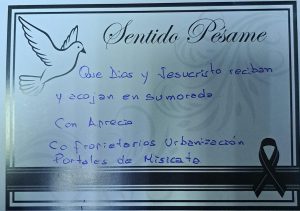 Sentido Pésame
Que Dios y Jesucristo reciban
y acojan en su morada
Con Aprecio
Co Propietarios Urbanización
Portales de Misicata